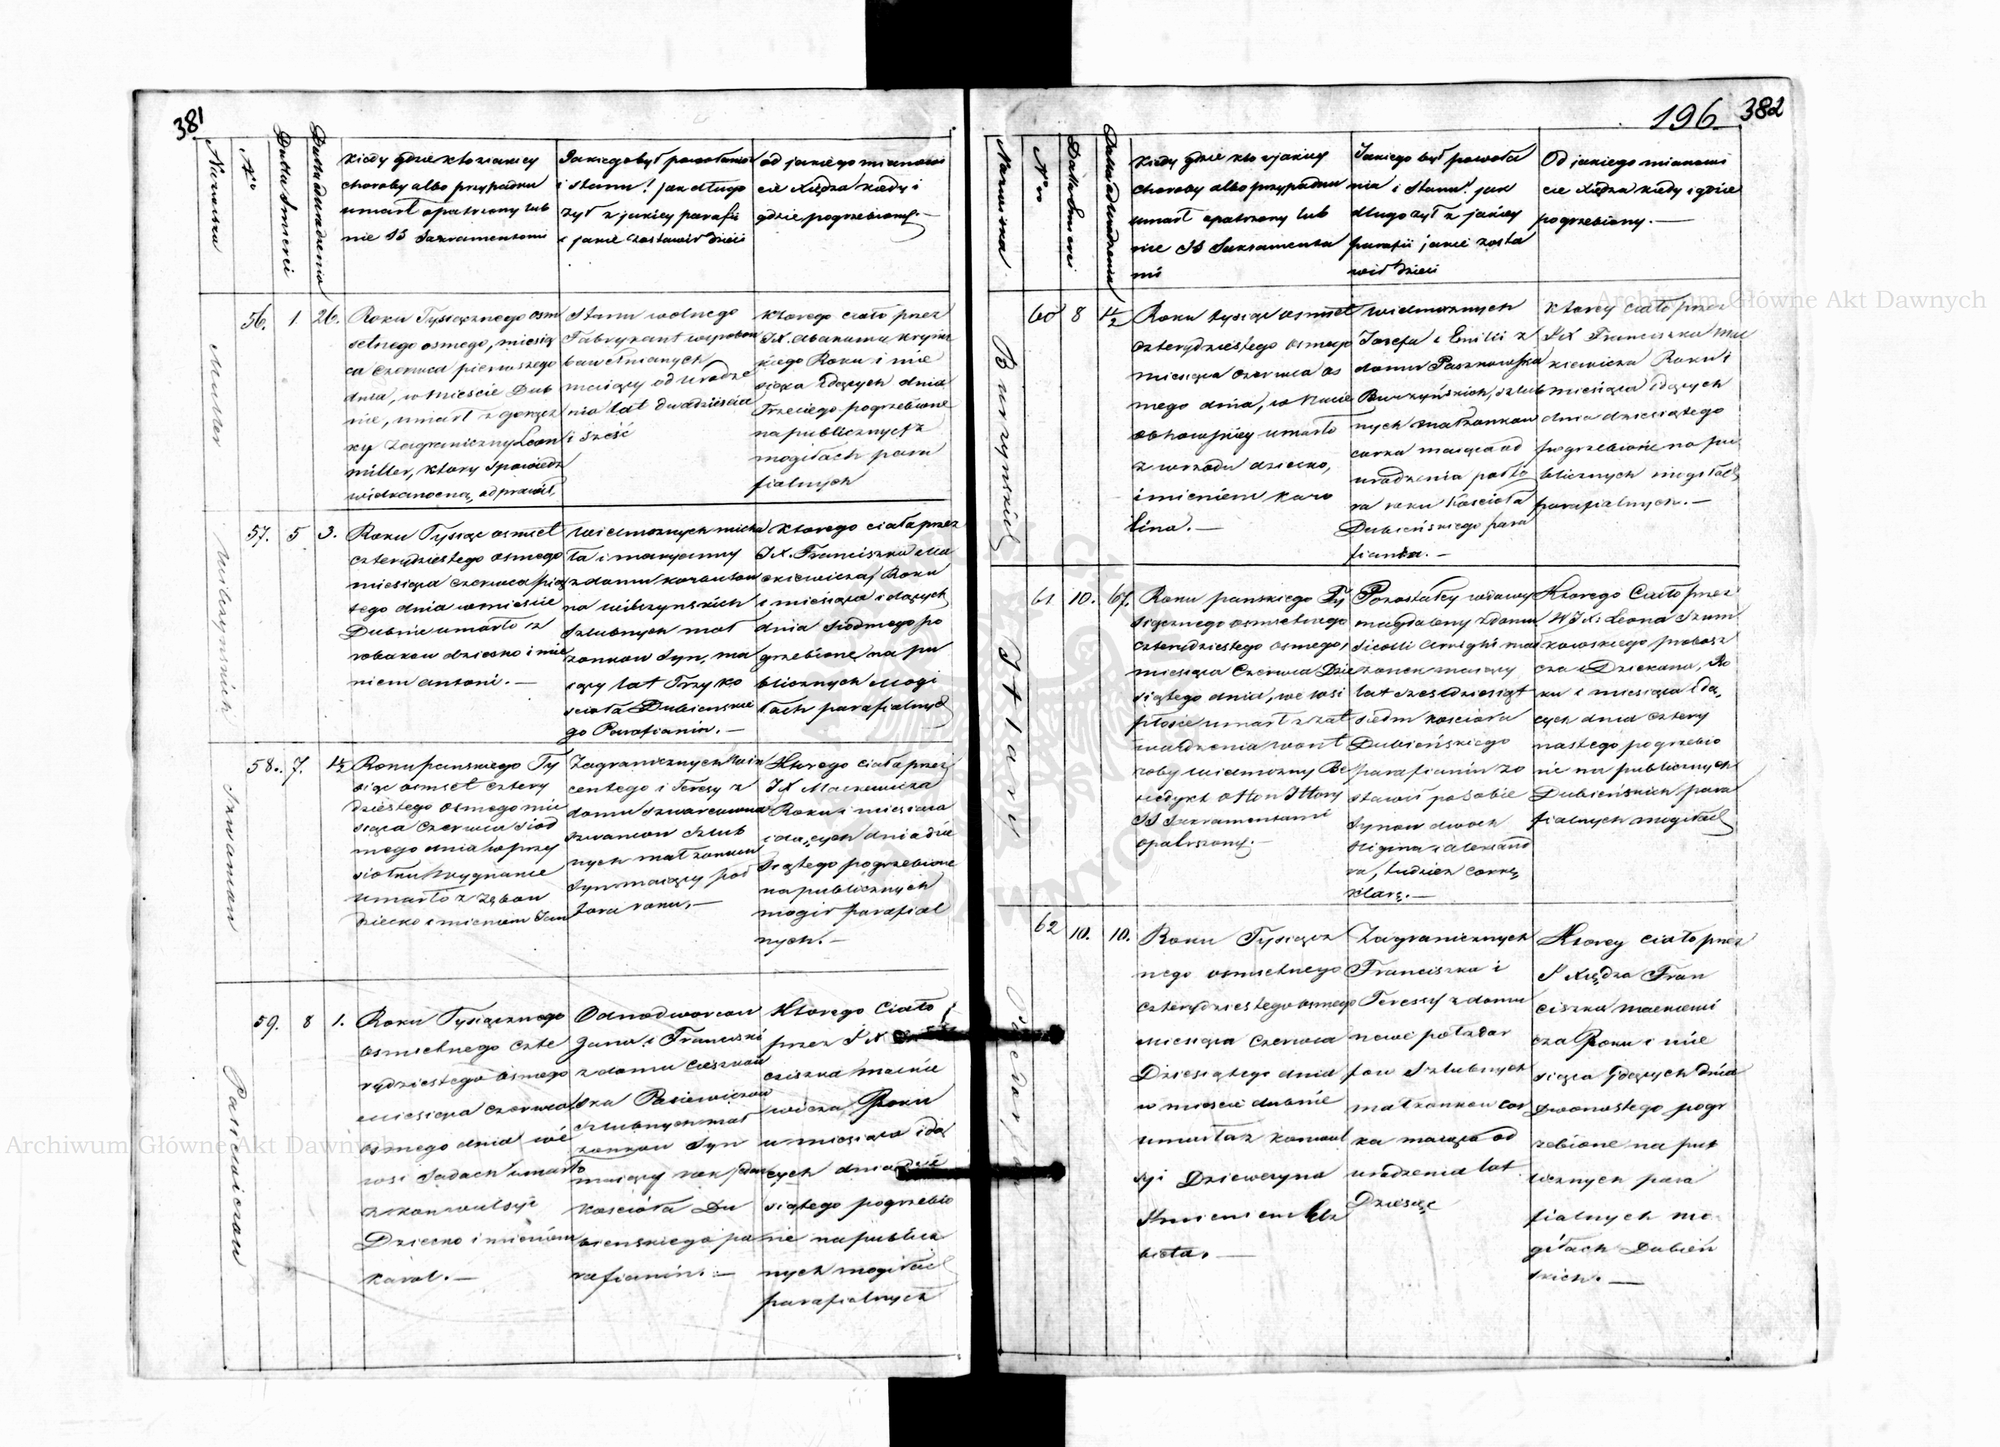 381
Nazwiska
Nro
Datta Smierci
Datta od urodzenia
Kiedy gdzie kto z jakiey
choroby albo przypadku
umarł opatrzony lub
nie SS Sakramentami
Jakiego był powołania
i stanu! jak długo
żył z jakiey parafii
i jakie zostawił dzieci
od jakiego mianowi
cie Xiędza kiedy i
gdzie pogrzebiony.—
Muller
56.
1.
26.
Roku Tysiącznego osm
setnego osmego, miesią
ca Czerwca pierwszego
dnia, w mieście Dub
nie, umarł z gorącz
ky Zagraniczny Leon
miller, ktory Spowiedz
wielkanocną odprawił,
Stanu wolnego
Fabrykant wyrobow
bawełnianych
maiący od urodze
nia lat dwadzieścia
i sześć
Ktorego ciało przez
JX. Abakuma
Roku i mie
siąca idących dnia
Trzeciego pogrzebione
na publicznych
mogiłach para
fialnych
57.
5
3.
Roku Tysiąc osmset
czterydziestego osmego
miesiąca Czerwca pią
tego dnia w mieście
Dubnie umarło z
robakow dziecko i mie
niem Antoni.—
Wielmożnych Micha
ła i Maryanny
z domu
na Wilczynskich
Szlubnych mał
żonkow Syn, ma
iący lat Trzy Ko
scioła Dubienskie
go Parafianin.—
Ktorego ciało przez
JX. Franciszka Ma
ckiewicza, Roku
i miesiąca idących
dnia siodmego po
grzebione na pu
blicznych Mogi
łach parafialnych
Szwamaw
58.
7.
1/2
Roku panskiego Ty
siąc osmset cztery
dziestego osmego mie
siąca Czerwca siod
mego dnia w przy
siołku Wygnanie
umarło z zębow
dziecko imieniem Jan
Zagranicznych Win
centego i Teresy z
domu
Szlub
nych małżonkow
Syn maiący poł
tora roku.—
Ktorego ciało przez
JX Mackewicza
Roku i miesiąca
idących dnia dzie
siątego pogrzebione
na publicznych
mogił parafial
nych.—
Pasiewiczow
59.
8
1.
Roku Tysiącznego
Osmsetnego czte
rydziestego Osmego
Miesiąca Czerwca
osmego dnia we
wsi Sadach umarło
z konwulsyi
Dziecko i mieniem
Karol.—
Odnodworcow
Jana i Franciszki
z domu
Pasiewiczow
szlubnych mał
żonkow Syn
maiący rok jeden
Kościoła Du
bienskiego pa
rafianin.—
Ktorego Ciało
przez JX
ciszka Mackie
wicza, Roku
i miesiąca idą
cych dnia dzie
siątego pogrzebio
ne na publicz
nych mogiłach
parafialnych
196.
382
Nazwiska
Nro
Datta Smierci
Datta od urodzenia
Kiedy gdzie kto z jakiey
choroby albo przypadku
umarł opatrzony lub
nie SS Sakramenta
mi
Jakiego był powoła
nia i Stanu! jak
długo żył z jakiey
parafii jakie zosta
wił dzieci
Od jakiego mianowi
cie Xiędza kiedy i gdzie
pogrzebiony.—
Burzynskich
60
8
1/2
Roku tysiąc osmset
czterydziestego osmego
miesiąca czerwca os
mego dnia, w
umarło
z wrzodu dziecko,
imieniem Karo
lina.—
Wielmożnych
Jozefa i Emilii z
domu Paszkowska
Burzyńskich, szlub
nych małżonkow
corka maiąca od
urodzenia połto
ra roku Kościoła
Dubieńskiego para
fianka.—
Ktorey ciało przez
JX Franciszka Mac
kiewicza Roku i
miesiąca idących
dnia dziesiątego
pogrzebione na pu
blicznych mogiłach
parafialnych.—
Ittary
61
10.
67.
Roku panskiego Ty
siącznego osmsetnego
czterydziestego osmego,
miesiąca Czerwca Dzie
siątego dnia, we wsi
umarł z zat
wardzenia wont
roby wielmożny Be
nedykt Otton Ittary
SS Sakramentami
opatrzony.—
Pozostałey wdowy
Magdaleny z domu
mał
żonek maiący
lat sześdziesiąt
siedm Kościoła
Dubieńskiego
parafianin zo
stawił po sobie
synow dwoch
Higina i Alexand
ra, tudziez corkę
Klarę.—
Ktorego Ciało przez
WJX. Leona Szum
kowskiego probosz
cza i Dziekana, Ro
ku i miesiąca idą
cych dnia cztery
nastego pogrzebio
ne na publicznych
Dubieńskich para
fialnych mogiłach
62
10.
10.
Roku Tysiącz
nego osmsetnego
czterydziestego osmego
miesiąca Czerwca
Dziesiątego dnia
w mieście Dubnie
umarła z konwul
syi Dziewczyna
Imieniem Elż
bieta.—
Zagranicznych
Franciszka i
Teressy z domu
Szlubnych
małżonkow Cor
ka maiąca od
urodzenia lat
Dziesięć
Ktorey ciało przez
J Xiędza Fran
ciszka Mackiewi
cza Roku i mie
siąca idących Dnia
Dwonastego pogr
zebione na pub
licznych para
fialnych mo
giłach Dubień
skich.—
Archiwum Główne Akt Dawnych
Archiwum Główne Akt Dawnych